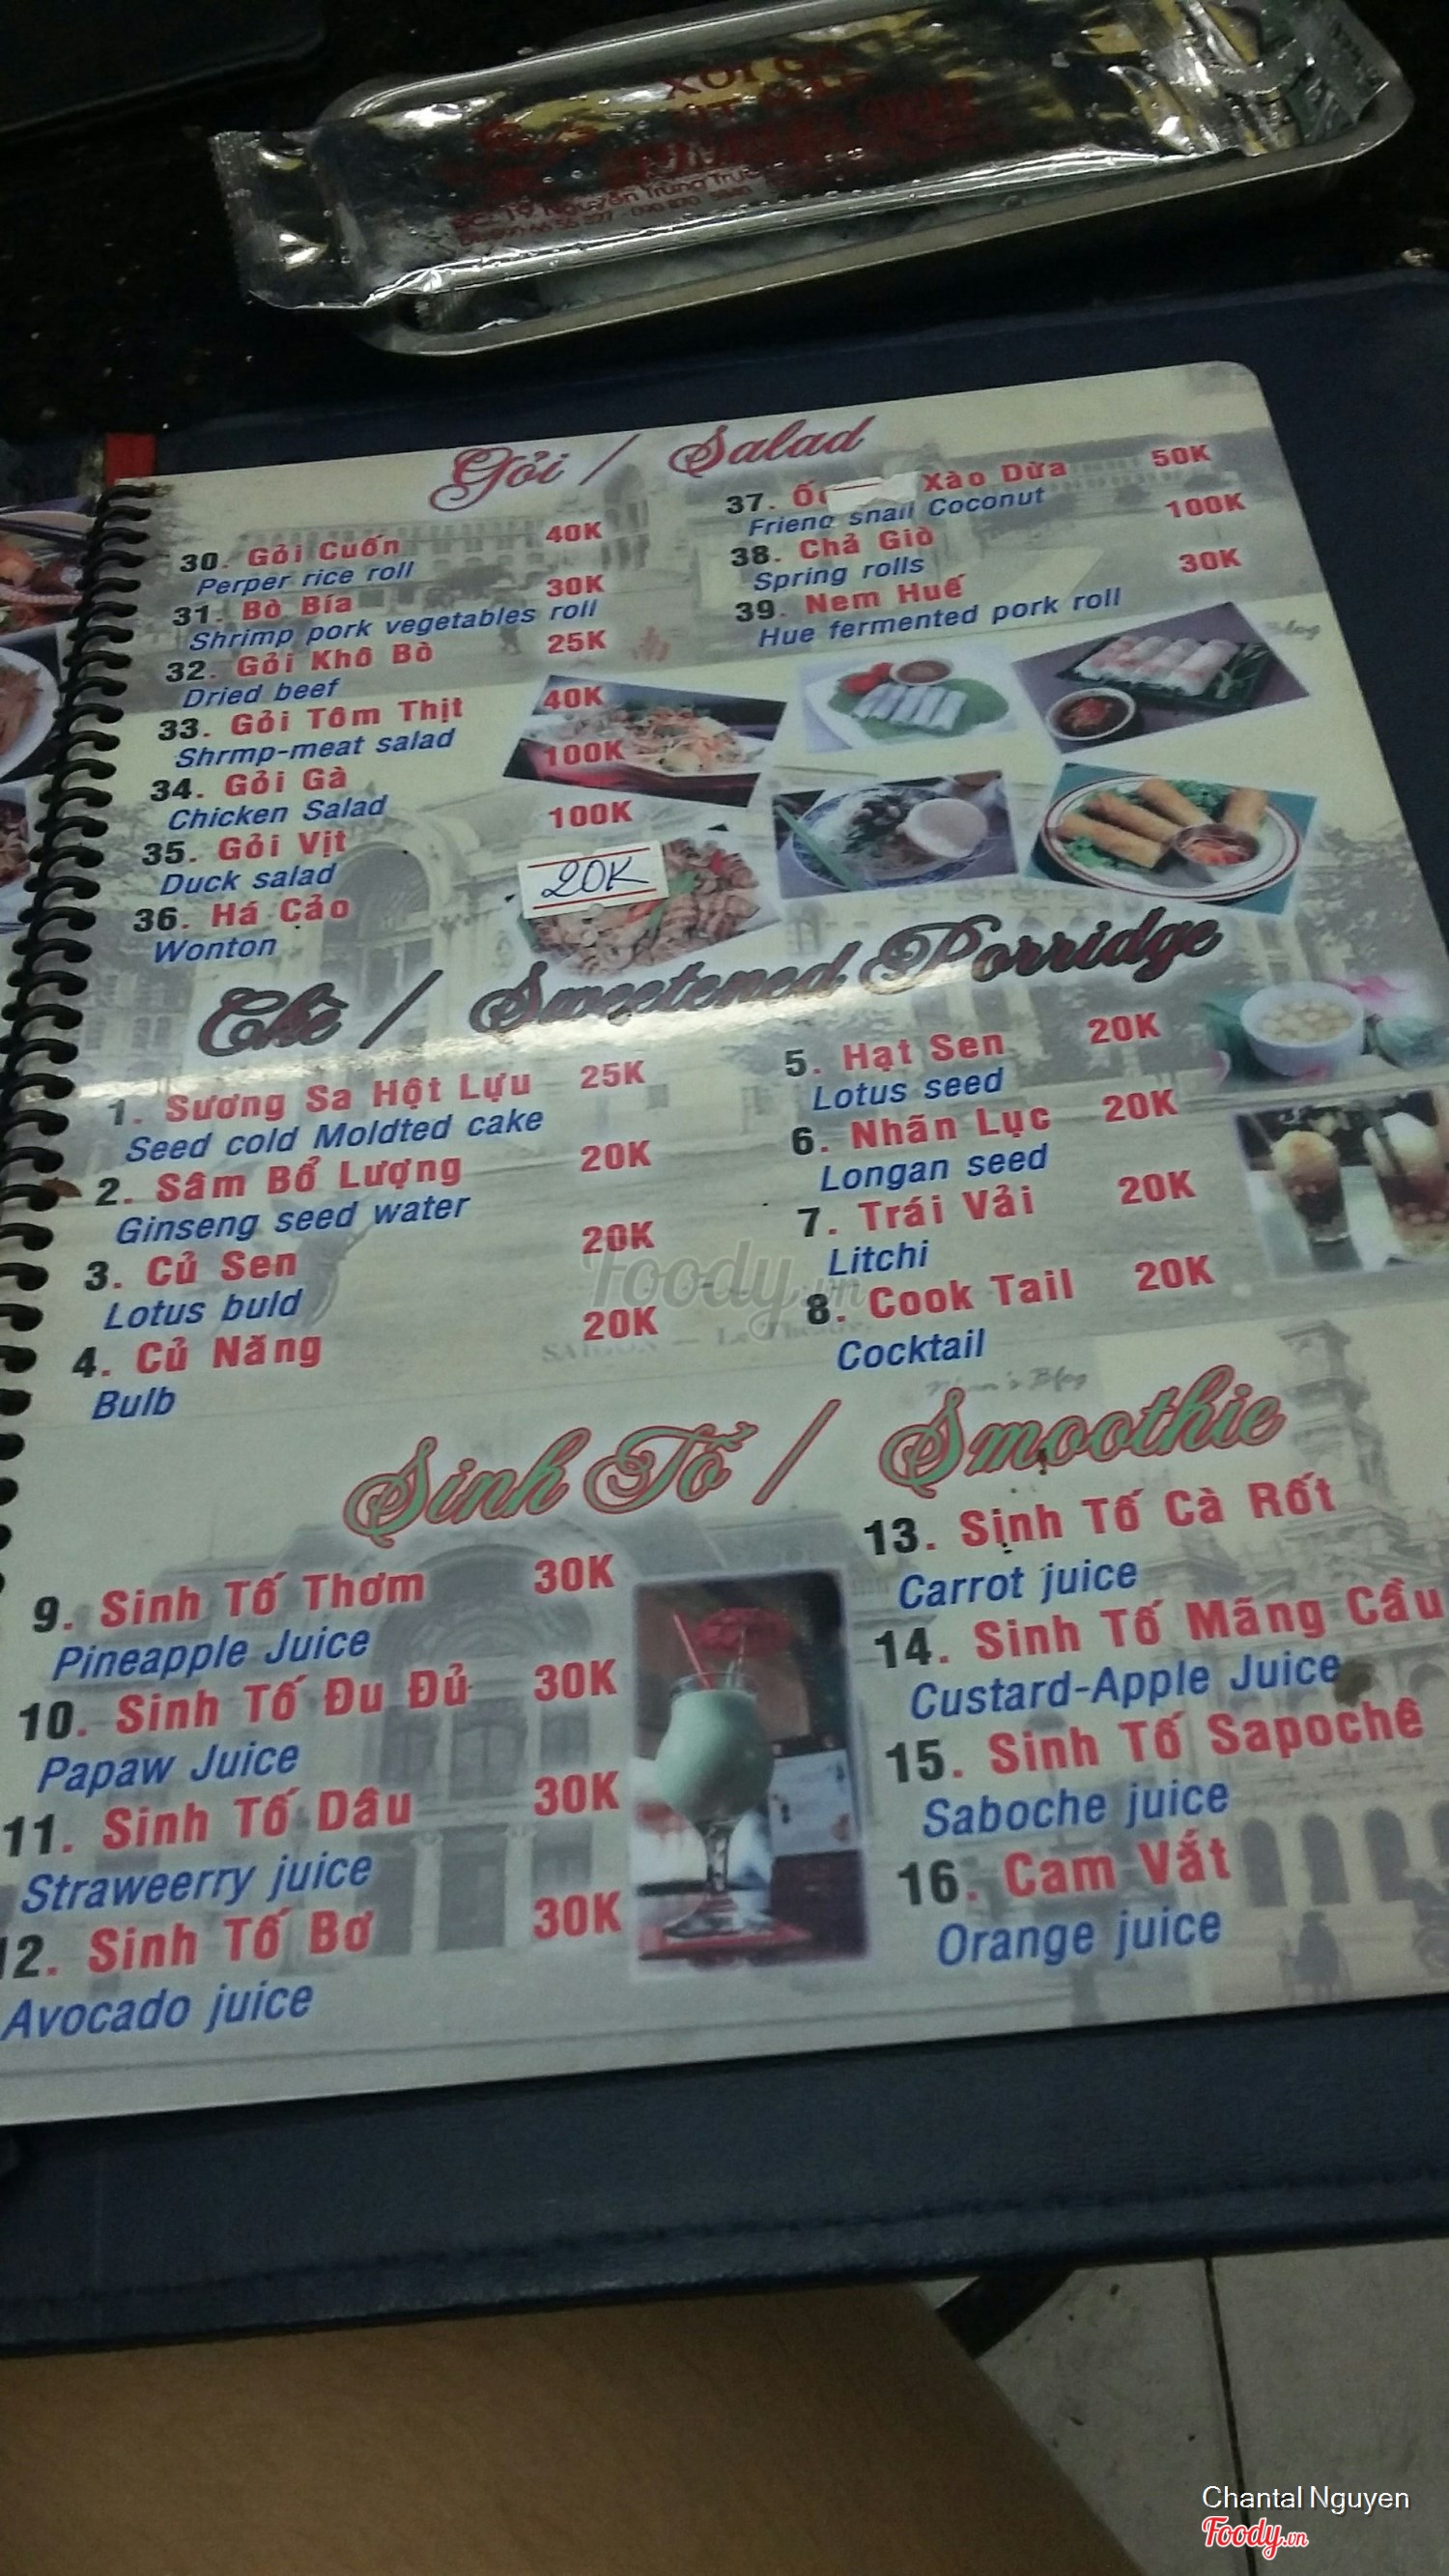 XÔI GÀ
ĐC: 19 Nguyễn Trung Trực
Gỏi / Salad
30. Gỏi Cuốn 40K
Perper rice roll
31. Bò Bía 30K
Shrimp pork vegetables roll
32. Gỏi Khô Bò 25K
Dried beef
33. Gỏi Tôm Thịt 40K
Shrmp-meat salad
34. Gỏi Gà 100K
Chicken Salad
35. Gỏi Vịt 100K
Duck salad
36. Há Cảo 20K
Wonton
37. Xào Dừa 50K
Friend snail Coconut
38. Chả Giò 100K
Spring rolls
39. Nem Huế 30K
Hue fermented pork roll
Blog
Chè / Sweetened Porridge
1. Sương Sa Hột Lựu 25K
Seed cold Moldted cake
2. Sâm Bổ Lượng 20K
Ginseng seed water
3. Củ Sen 20K
Lotus buld
4. Củ Năng 20K
Bulb
5. Hạt Sen 20K
Lotus seed
6. Nhãn Lục 20K
Longan seed
7. Trái Vải 20K
Litchi
8. Cook Tail 20K
Cocktail
Foody.vn
SAIGON — Le Théâtre
Blog
Sinh Tố / Smoothie
9. Sinh Tố Thơm 30K
Pineapple Juice
10. Sinh Tố Đu Đủ 30K
Papaw Juice
11. Sinh Tố Dâu 30K
Straweerry juice
12. Sinh Tố Bơ 30K
Avocado juice
13. Sinh Tố Cà Rốt
Carrot juice
14. Sinh Tố Mãng Cầu
Custard-Apple Juice
15. Sinh Tố Sapochê
Saboche juice
16. Cam Vắt
Orange juice
Chantal Nguyen
Foody.vn